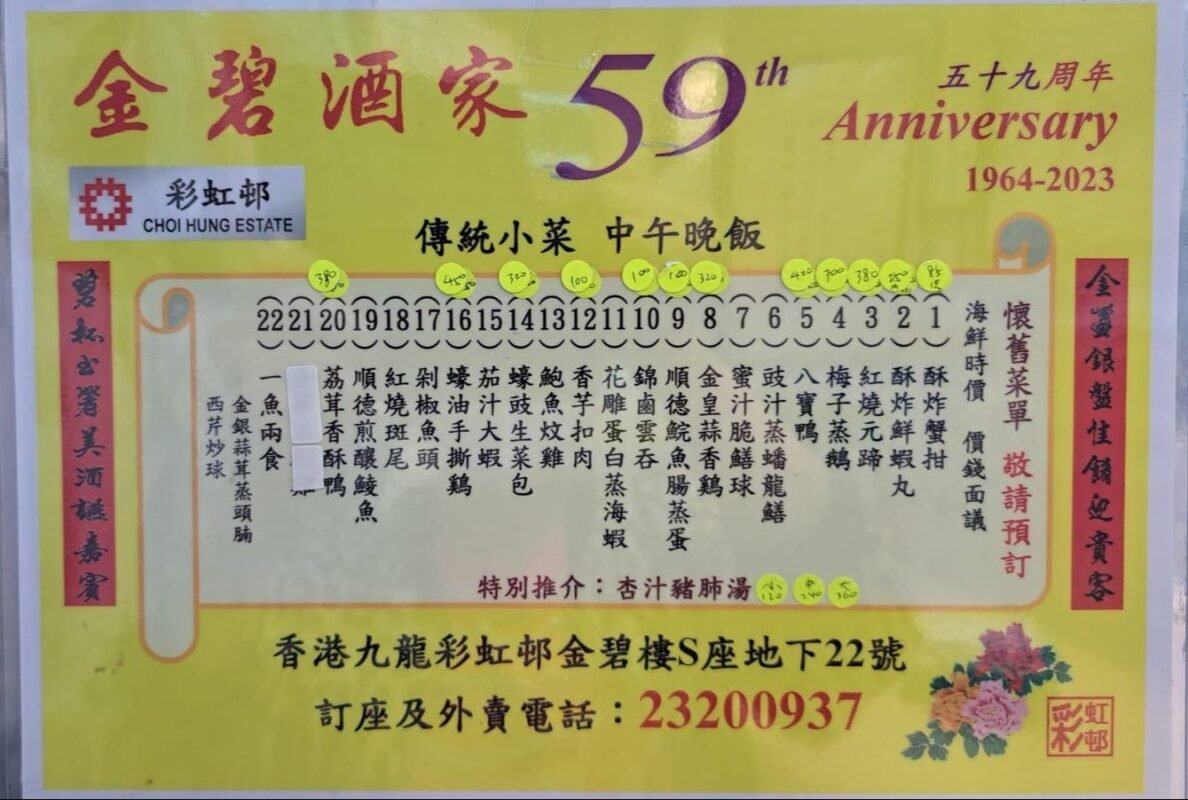 金碧酒家
59th
五十九周年
Anniversary
1964-2023
彩虹邨
CHOI HUNG ESTATE
傳統小菜 中午晚飯
金盞銀盤佳餚迎貴客
懷舊菜單 敬請預訂
海鮮時價 價錢面議
(1) 酥炸蟹拑
(2) 酥炸鮮蝦丸
380
(3) 紅燒元蹄
700
(4) 梅子蒸鵝
420
(5) 八寶鴨
(6) 豉汁蒸蟠龍鱔
(7) 蜜汁脆鱔球
320
(8) 金皇蒜香鷄
100
(9) 順德鯇魚腸蒸蛋
100
(10) 錦鹵雲吞
(11) 花雕蛋白蒸海蝦
100
(12) 香芋扣肉
(13) 鮑魚炆雞
320
(14) 蠔豉生菜包
(15) 茄汁大蝦
450
(16) 蠔油手撕鷄
(17) 剁椒魚頭
(18) 紅燒斑尾
(19) 順德煎釀鯪魚
380
(20) 荔茸香酥鴨
(21)
(22) 一魚兩食
金銀蒜茸蒸頭腩
西芹炒球
特別推介：杏汁豬肺湯
小120
中240
大360
碧杯玉箸美酒讌嘉賓
香港九龍彩虹邨金碧樓S座地下22號
訂座及外賣電話：23200937
彩虹邨